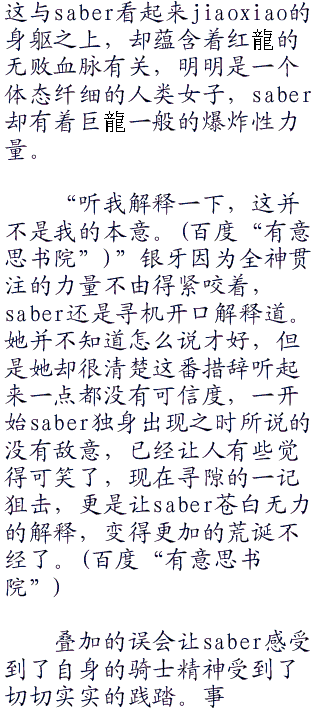 这与saber看起来jiaoxiao的
身躯之上，却蕴含着红龍的
无败血脉有关，明明是一个
体态纤细的人类女子，saber
却有着巨龍一般的爆炸性力
量。
“听我解释一下，这并
不是我的本意。(百度“有意
思书院”)”银牙因为全神贯
注的力量不由得紧咬着，
saber还是寻机开口解释道。
她并不知道怎么说才好，但
是她却很清楚这番措辞听起
来一点都没有可信度，一开
始saber独身出现之时所说的
没有敌意，已经让人有些觉
得可笑了，现在寻隙的一记
狙击，更是让saber苍白无力
的解释，变得更加的荒诞不
经了。(百度“有意思书
院”)
叠加的误会让saber感受
到了自身的骑士精神受到了
切切实实的践踏。事